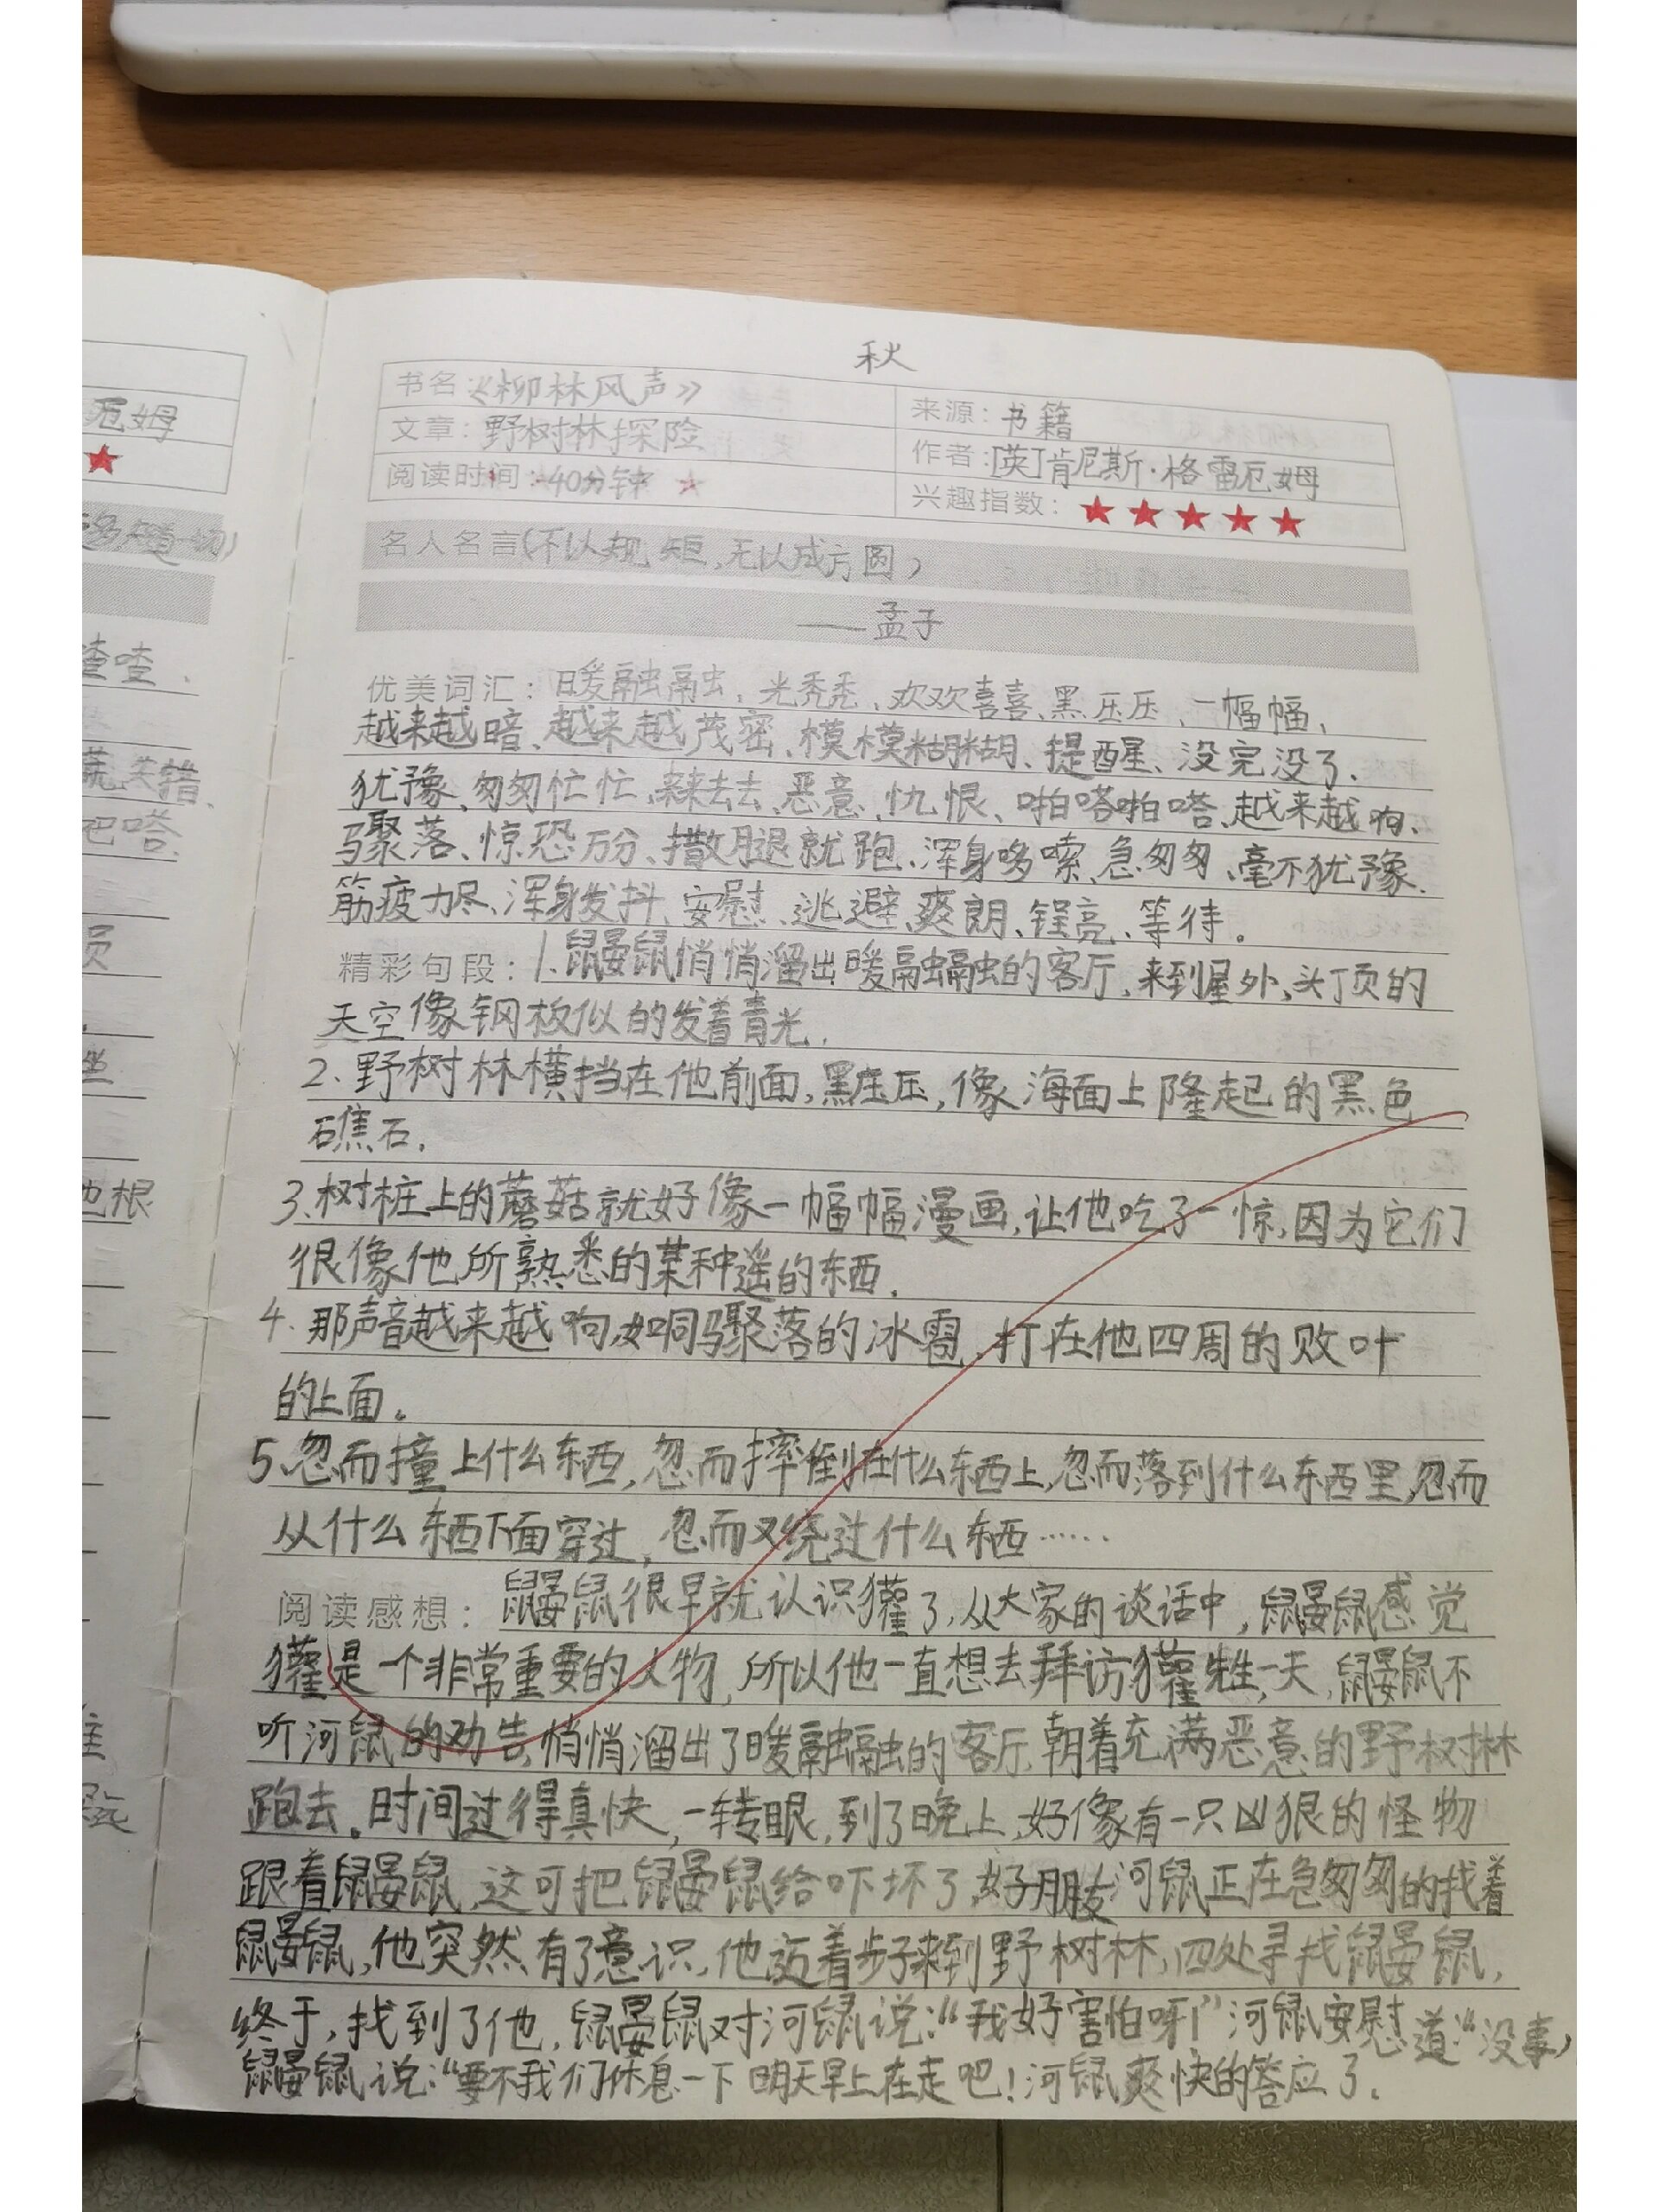 秋
书名：《柳林风声》
来源：书籍
文章：野树林探险
作者：[英]肯尼斯·格雷厄姆
阅读时间：40分钟
兴趣指数：★★★★★
名人名言（不以规矩，无以成方圆）
——孟子
优美词汇：暖融融、光秃秃、欢欢喜喜、黑压压、一幅幅、
越来越暗、越来越茂密、模模糊糊、提醒、没完没了、
犹豫、匆匆忙忙、来来去去、恶意、仇恨、啪嗒啪嗒、越来越响、
骤落、惊恐万分、撒腿就跑、浑身哆嗦、急匆匆、毫不犹豫、
筋疲力尽、浑身发抖、安慰、逃避、爽朗、锃亮、等待。
精彩句段：1、鼹鼠悄悄溜出暖融融的客厅，来到屋外，头顶的
天空像钢板似的发着青光。
2、野树林横挡在他前面，黑压压，像海面上隆起的黑色
礁石。
3、树桩上的蘑菇就好像一幅幅漫画，让他吃了一惊，因为它们
很像他所熟悉的某种遥的东西。
4、那声音越来越响，如同骤落的冰雹，打在他四周的败叶
的上面。
5、忽而撞上什么东西，忽而摔倒在什么东西上，忽而落到什么东西里，忽而
从什么东西下面穿过，忽而又绕过什么东西……
阅读感想：鼹鼠很早就认识獾了，从大家的谈话中，鼹鼠感觉
獾是一个非常重要的人物，所以他一直想去拜访獾先生，一天，鼹鼠不
听河鼠的劝告，悄悄溜出了暖融融的客厅，朝着充满恶意的野树林
跑去。时间过得真快，一转眼，到了晚上，好像有一只凶狠的怪物
跟着鼹鼠，这可把鼹鼠给吓坏了，好朋友河鼠正在急匆匆的找着
鼹鼠，他突然有了意识，他迈着步子来到野树林，四处寻找鼹鼠，
终于，找到了他，鼹鼠对河鼠说：“我好害怕呀！”河鼠安慰道：“没事，
鼹鼠说：“要不我们休息一下明天早上在走吧！河鼠爽快的答应了。
厄姆
★
喳喳、
巴嗒、
员
他根